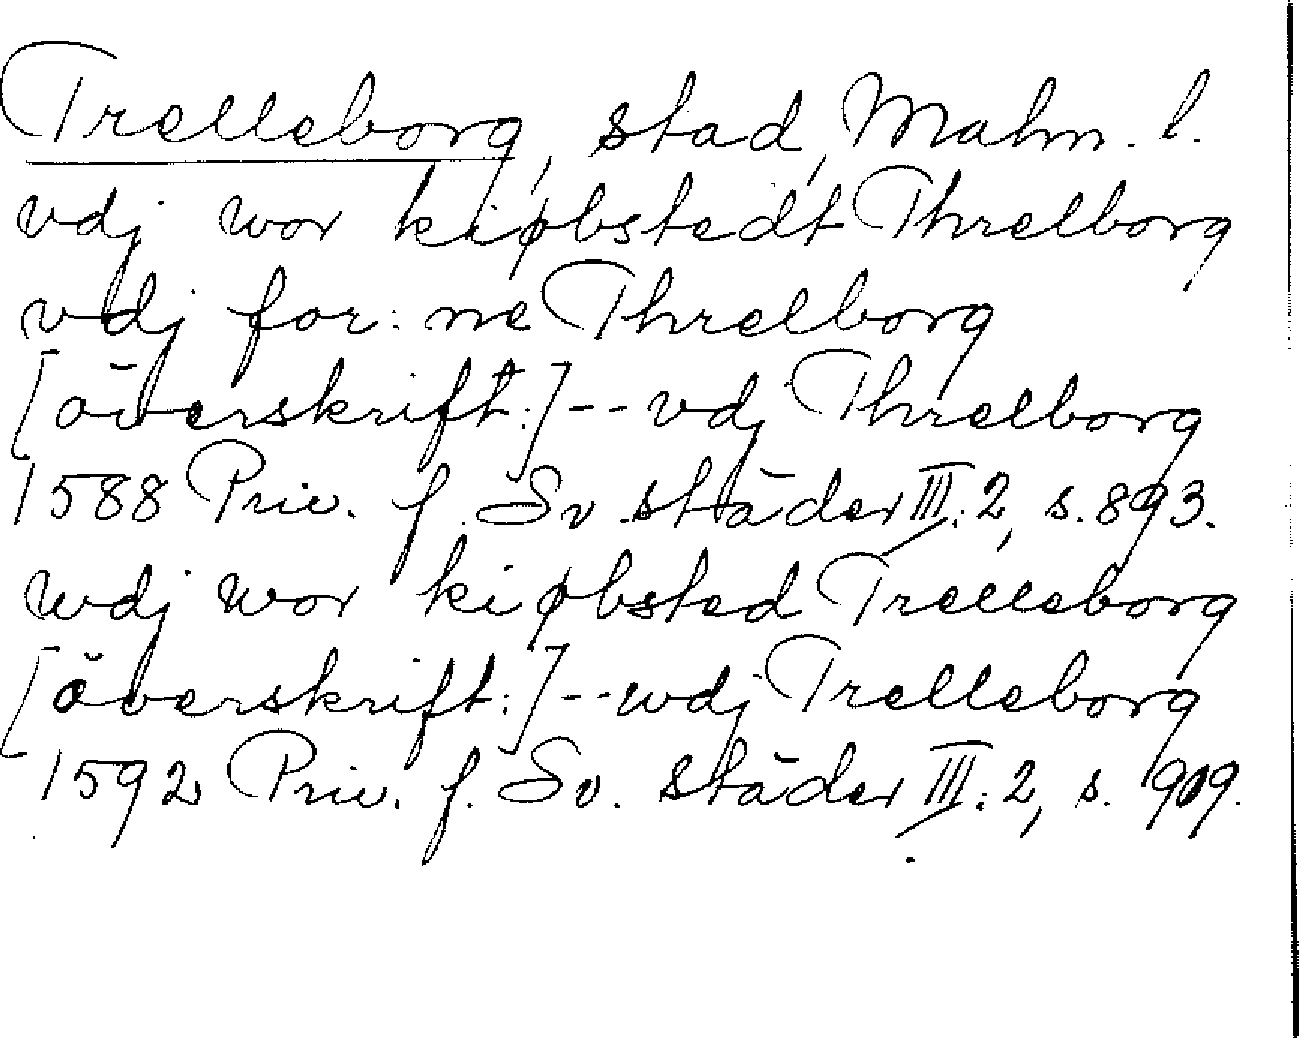 Trelleborg, stad, Malm. l.
vdj wor kiøbstedt Threlborg
vdj for: ne Threlborg
[överskrift:]-- vdj Threlborg
1588 Priv. f. Sv. städer III:2, s. 893.
wdj wor kiøbsted Trelleborg
[överskrift:]-- wdj Trelleborg
1592 Priv. f. Sv. städer III:2, s. 909.